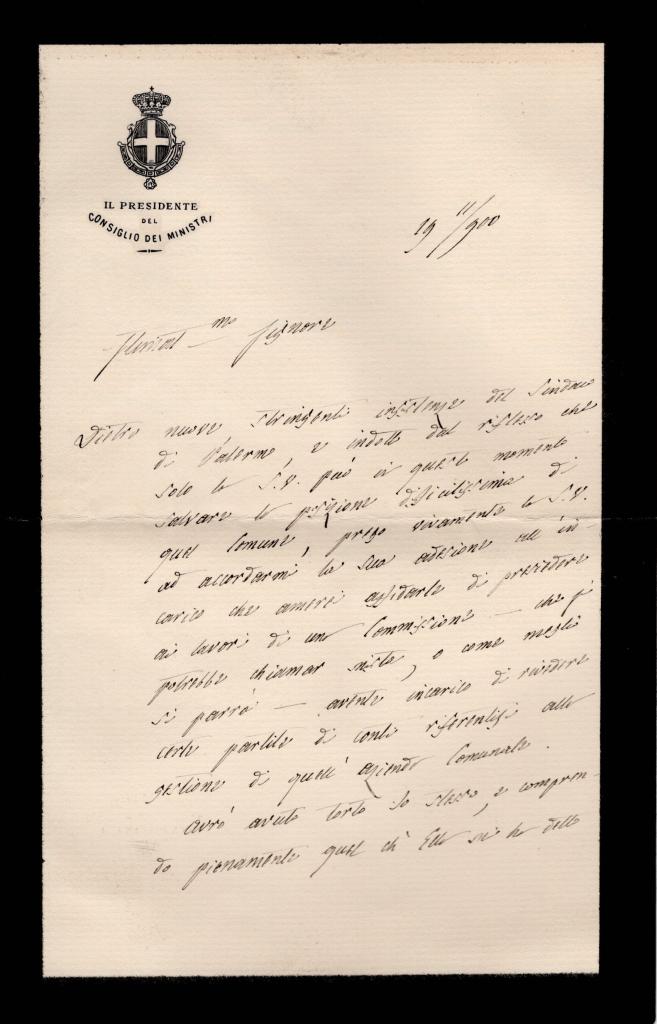 IL PRESIDENTE
DEL
CONSIGLIO DEI MINISTRI
19 11/900
Signore
Dietro nuove stringenti insistenze del Sindaco
di Palermo, e indotto dal riflesso che
solo la S.V. può in questo momento
salvare la posizione difficilissima di
quel Comune, prego vivamente la S.V.
ad accordarmi la sua adesione all'in-
carico che amerei affidarle di presiedere
ai lavori di una Commissione — che si
potrebbe chiamar mista, o come meglio
si parrà — avente incarico di rivedere
certe partite di conti riferentisi alla
gestione di quell'azienda Comunale.
Avrò avuto torto io stesso, e compren-
do pienamente quel ch'Ella mi ha detto